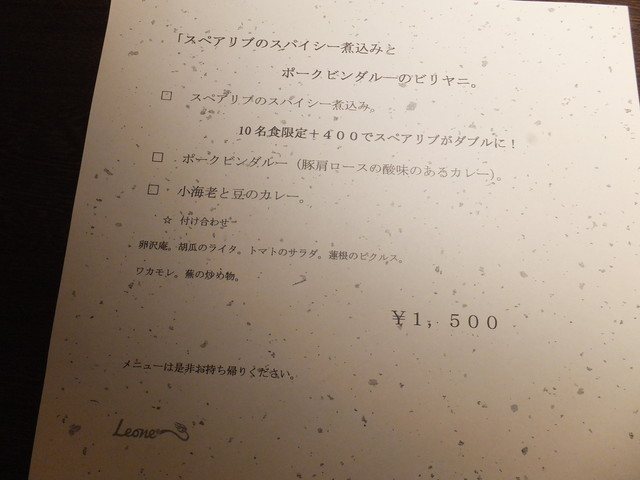 「スペアリブのスパイシー煮込みと
ポークビンダルーのビリヤニ。
□ スペアリブのスパイシー煮込み。
10名食限定+400でスペアリブがダブルに!
□ ポークビンダルー(豚肩ロースの酸味のあるカレー)。
□ 小海老と豆のカレー。
☆ 付け合わせ
卵沢庵。胡瓜のライタ。トマトのサラダ。蓮根のピクルス。
ワカモレ。蕪の炒め物。
¥1,500
メニューは是非お持ち帰りください。
Leone